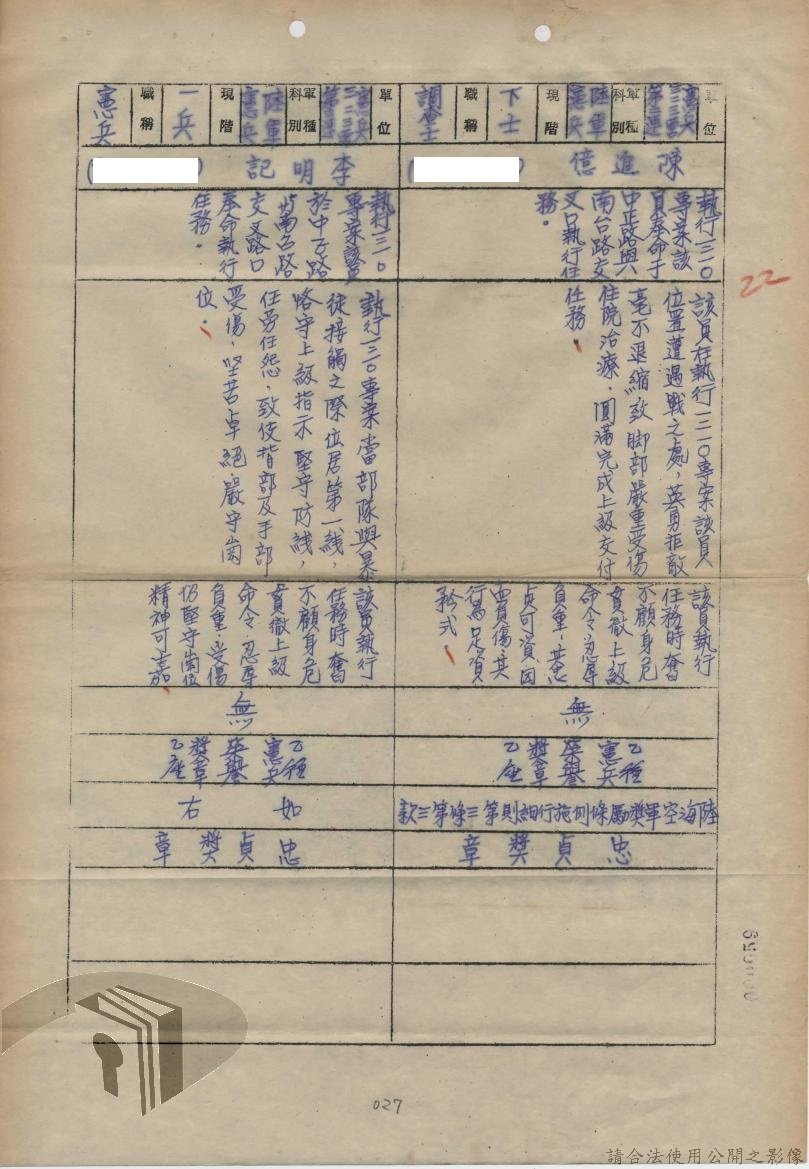 單位
憲兵
軍種
科別
陸軍
憲兵
現階
下士
職稱
陳進億
執行一三一〇
專案該
員奉命于
中正路與
南台路交
叉口執行任
務。
該員在執行一三一〇專案該員
位置遭遇戰之處,英勇拒敵
毫不退縮致腳部嚴重受傷
住院治療,圓滿完成上級交付
任務。
該員執行
任務時奮
不顧身危
貫徹上級
命令忍辱
負重,其忠
貞可資,因
而負傷,其
行為足資
矜式。
無
乙種
憲兵
榮譽
獎章
乙座
陸海空軍獎勵條例施行細則第三條第三款
忠貞獎章
單位
憲兵
軍種
科別
陸軍
憲兵
現階
一兵
職稱
憲兵
李明記
執行一三一〇
專案該員
於中正路
與南台路
交叉路口
奉命執行
任務。
執行一三一〇專案當部隊與暴
徒接觸之際位居第一線,
恪守上級指示堅守防線,
任勞任怨,致使指部及手部
受傷,堅苦卓絕嚴守崗
位。
該員執行
任務時奮
不顧身危
貫徹上級
命令忍辱
負重,受傷
仍堅守崗位
精神可嘉。
無
乙種
憲兵
榮譽
獎章
乙座
如右
忠貞獎章
22
027
請合法使用公開之影像